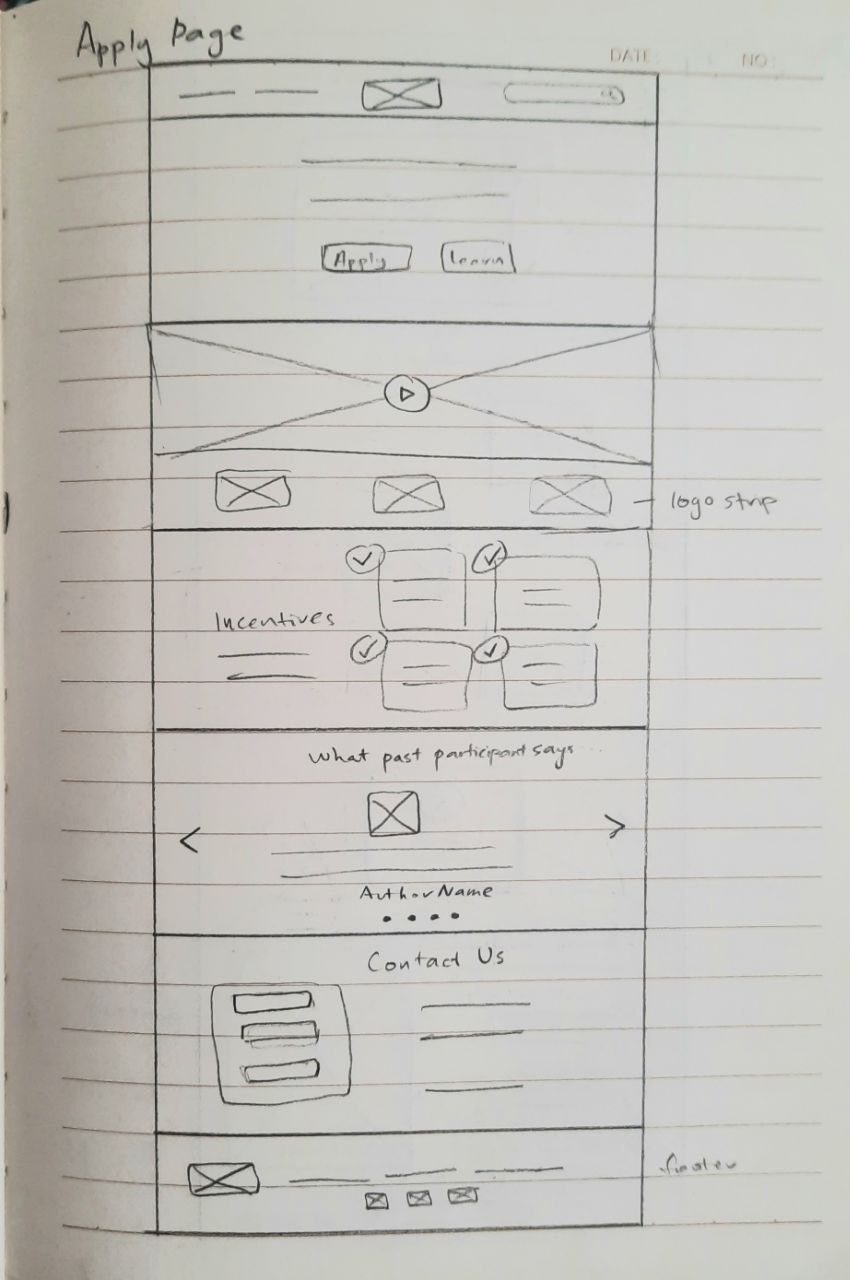 Apply Page
DATE:
NO:
Apply
Learn
logo strip
Incentives
What past participant says
Author Name
Contact Us
footer